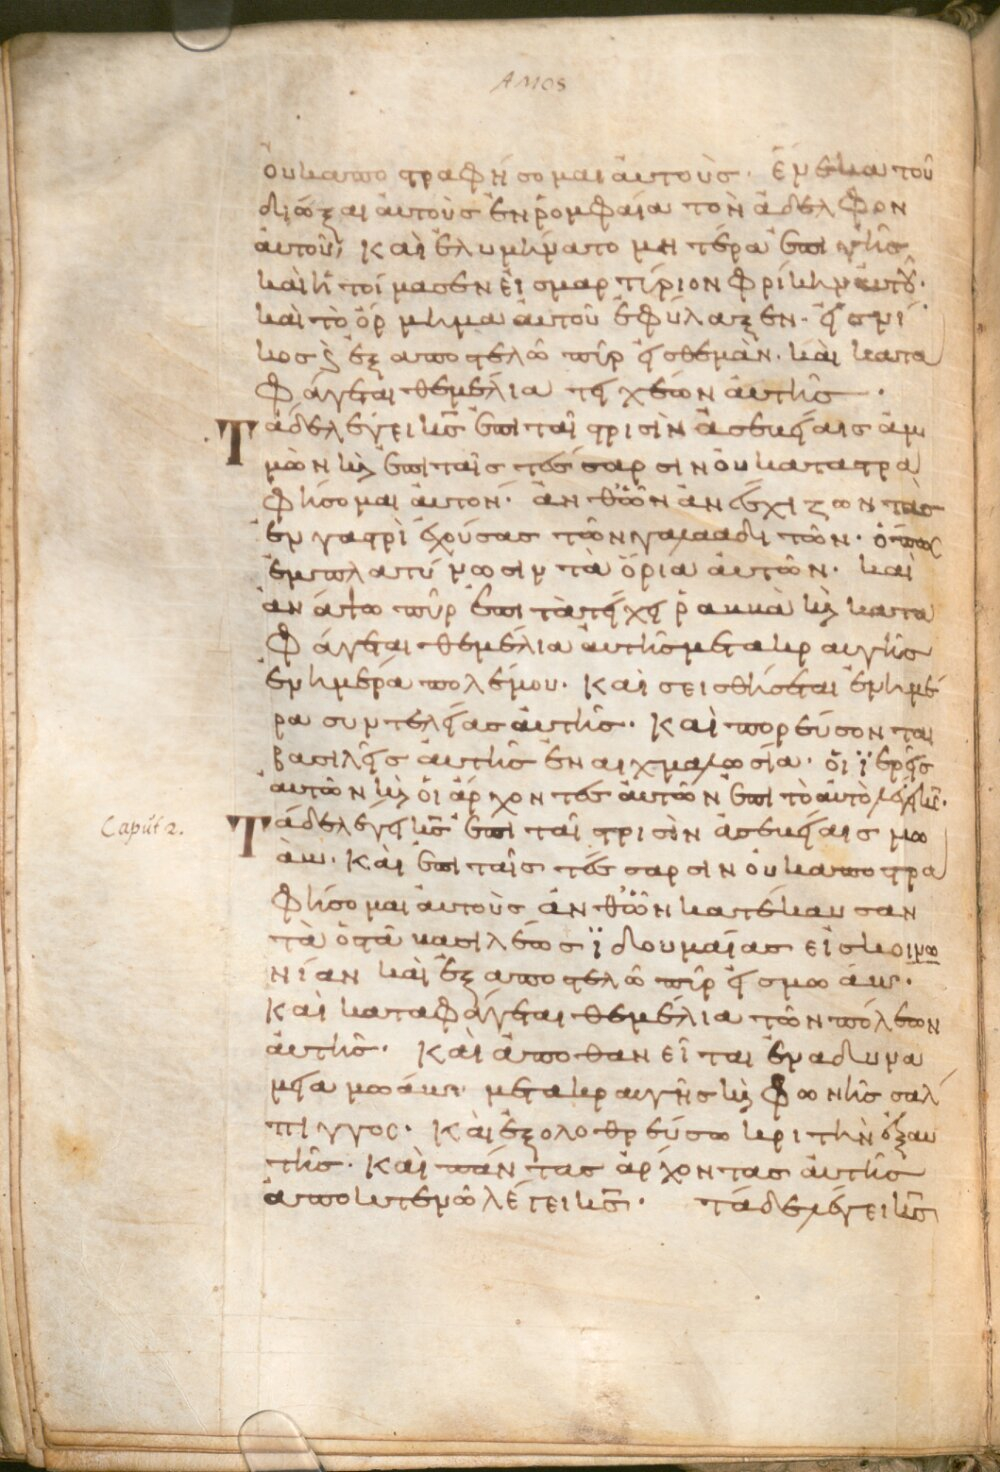 AMOS
ὀυκαποστραφήσομαι ἀυτοὺσ· ἕνεκα τοῦ
διῶξαι ἀυτοὺσ ἐν ῥομφαία τὸν ἀδελφὸν
ἀυτοῦ, καὶ ἐλυμήνατο μητέρα ἐπι γῆσ
καὶ ἡτοίμασεν εἰσ μαρτύριον φρίκην ἀυτοῦ·
καὶ τὸ ὅρμημα ἀυτοῦ ἐφύλαξεν· εἰσ νί
κοσ ϗ ἐξαποστελῶ πῦρ εἰσ θεμὰν· καὶ κατα
φάγεται θεμέλια τειχέων ἀυτῆσ·
Τάδε λέγει κ̅σ̅ ἐπι ταῖ τρισὶν ἀσεβείαισ ἀμ
μὼν ϗ ἐπι ταῖσ τέσσαρσιν ὀυκαταστρα
φήσομαι ἀυτον· ἀνθῶν ἀνέσχιζον τὰσ
ἐν γαστρὶ ἐχούσασ τῶν γαλααδιτῶν· ὅπωσ
ἐμπλατύνωσιν τὰ ὅρια ἀυτῶν· καὶ
ἀνάψω πῦρ ἐπι τὰ τείχη ῥαββὰ ϗ κατα
φάγεται θεμέλια ἀυτῆσ μετα κραυγῆσ
ἐν ἡμέρα πολέμου· καὶ σεισθήσεται ἐν ἡμέ
ρα συντελείασ ἀυτῆσ· καὶ πορεύσονται
βασιλεῖσ ἀυτῆσ ἐν αιχμαλωσία· ὁι ϊερεῖσ
ἀυτῶν ϗ ὁι ἄρχοντεσ ἀυτῶν ἐπι τὸ ἀυτὸ λέγει κ̅σ̅·
Caput 2.
Τάδε λέγει κ̅σ̅ ἐπι ταῖ τρισὶν ἀσεβείαισ μω
ὰβ· καὶ ἐπι ταῖσ τέσσαρσιν ὀυκαποστρα
φήσομαι ἀυτοὺσ ἀνθῶν κατέκαυσαν
τὰ ὀστᾶ βασιλέωσ ϊδουμαίασ εἰσ κονί
νίαν καὶ ἐξαποστελῶ πῦρ εἰσ μωάβ·
καὶ καταφάγεται θεμέλια τῶν πόλεων
ἀυτῆσ· καὶ ἀποθανεῖται ἐν αδυνα
μεία μωάβ· μετα κραυγῆσ ϗ φωνῆσ σάλ
πιγγοσ· καὶ ἐξολοθρεύσω κριτὴν ἐξ αυ
τῆσ· καὶ πάντασ ἄρχοντασ ἀυτῆσ
ἀποκτενῶ λέγει κ̅σ̅· τάδε λέγει κ̅σ̅